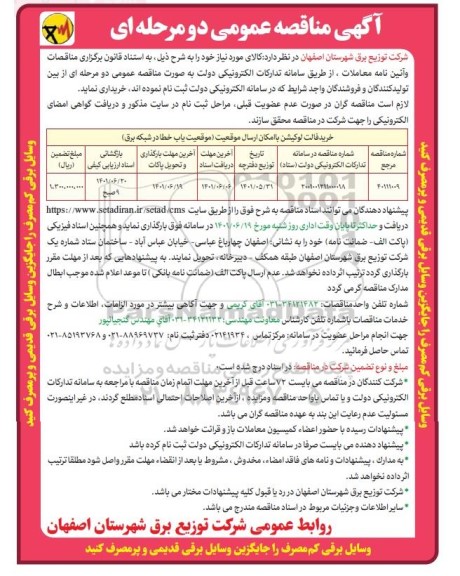 آگهی مناقصه عمومی دو مرحله ای
شرکت توزیع برق شهرستان اصفهان در نظر دارد: کالای مورد نیاز خود را به شرح ذیل، به استناد قانون برگزاری مناقصات
وآئین نامه معاملات ، از طریق سامانه تدارکات الکترونیکی دولت به صورت مناقصه عمومی دو مرحله ای از بین
تولیدکنندگان و فروشندگان واجد شرایط که در سامانه الکترونیکی دولت ثبت نام نموده اند، خریداری نماید.
لازم است مناقصه گران در صورت عدم عضویت قبلی، مراحل ثبت نام در سایت مذکور و دریافت گواهی امضای
الکترونیکی را جهت شرکت در مناقصه محقق سازند.
خرید فالت لوکیشن باامکان ارسال موقعیت (موقعیت یاب خطا در شبکه برق)
شماره مناقصه مرجع
شماره مناقصه در سامانه تدارکات الکترونیکی دولت (ستاد)
تاریخ توزیع دفترچه
آخرین مهلت دریافت اسناد
آخرین مهلت بارگذاری و تحویل پاکات
بازگشائی اسناد ارزیابی کیفی
مبلغ تضمین (ریال)
۱۴۰۱/۰۵/۳۱
۱۴۰۱/۰۶/۰۶
۱۴۰۱/۰۶/۱۹
۱۴۰۱/۰۶/۲۰ ۹صبح
پیشنهاد دهندگان می توانند اسناد مناقصه به شرح فوق را از طریق سایت https://www.setadiran.ir/setad/cms
دریافت و حداکثر تا پایان وقت اداری روز شنبه مورخ ۱۴۰۱/۰۶/۱۹ در سامانه فوق بارگذاری نماید و همچنین اسناد فیزیکی
(پاکت الف- ضمانت نامه) خود را به نشانی: اصفهان چهارباغ عباسی- خیابان عباس آباد - ساختمان ستاد شماره یک
شرکت توزیع برق شهرستان اصفهان طبقه همکف - دبیرخانه، تحویل نمایند. به پیشنهادهایی که بعد از مهلت مقرر
بارگذاری گردد ترتیب اثر داده نخواهد شد. عدم ارسال پاکت الف (ضمانت نامه بانکی ) تا موعد اعلام شده موجب ابطال
مدارک مناقصه گر می گردد
شماره تلفن واحد مناقصات: آقای کریمی و جهت آگاهی بیشتر در مورد الزامات، اطلاعات و شرح
خدمات مناقصات باشماره تلفن کارشناس معاونت مهندسی: آقای مهندس گنجیالپور
جهت انجام مراحل عضویت در سامانه: مرکز تماس ، دفتر ثبت نام: ۰۲۱-۸۸۹۶۹۷۳۷ و ۰۲۱-۸۵۱۹۳۷۶۸
تماس حاصل فرمائید.
مبلغ و نوع تضمین شرکت در مناقصه: در اسناد درج شده است.
*شرکت کنندگان در مناقصه می بایست ۷۲ساعت قبل از آخرین مهلت اتمام زمان مناقصه با مراجعه به سامانه تدارکات
الکترونیکی دولت و یا تماس باواحد مناقصه و مزایده ، از آخرین اصلاحات احتمالی اسناد مطلع گردند، در غیر اینصورت
مسئولیت عدم رعایت این بند به عهده مناقصه گران می باشد.
* پیشنهادات رسیده با حضور اعضاء کمیسیون معاملات باز و قرائت خواهد شد.
* پیشنهاد دهنده می بایست صرفا در سامانه تدارکات الکترونیکی دولت ثبت نام کرده باشد
*به مدارک ، پیشنهادات و نامه های فاقد امضاء ، مخدوش ، مشروط یا بعد از انقضاء مهلت مقرر واصل شود مطلقا ترتیب
اثر داده نخواهد شد.
* شرکت توزیع برق شهرستان اصفهان در رد یا قبول کلیه پیشنهادات مختار می باشد.
* سایر اطلاعات و جزئیات مربوط در اسناد مناقصه مندرج می باشد.
روابط عمومی شرکت توزیع برق شهرستان اصفهان
وسایل برقی کم مصرف را جایگزین وسایل برقی قدیمی و پرمصرف کنید
وسایل برقی کم مصرف را جایگزین وسایل برقی قدیمی و پرمصرف کنید
وسایل برقی کم مصرف را جایگزین وسایل برقی قدیمی و پرمصرف کنید